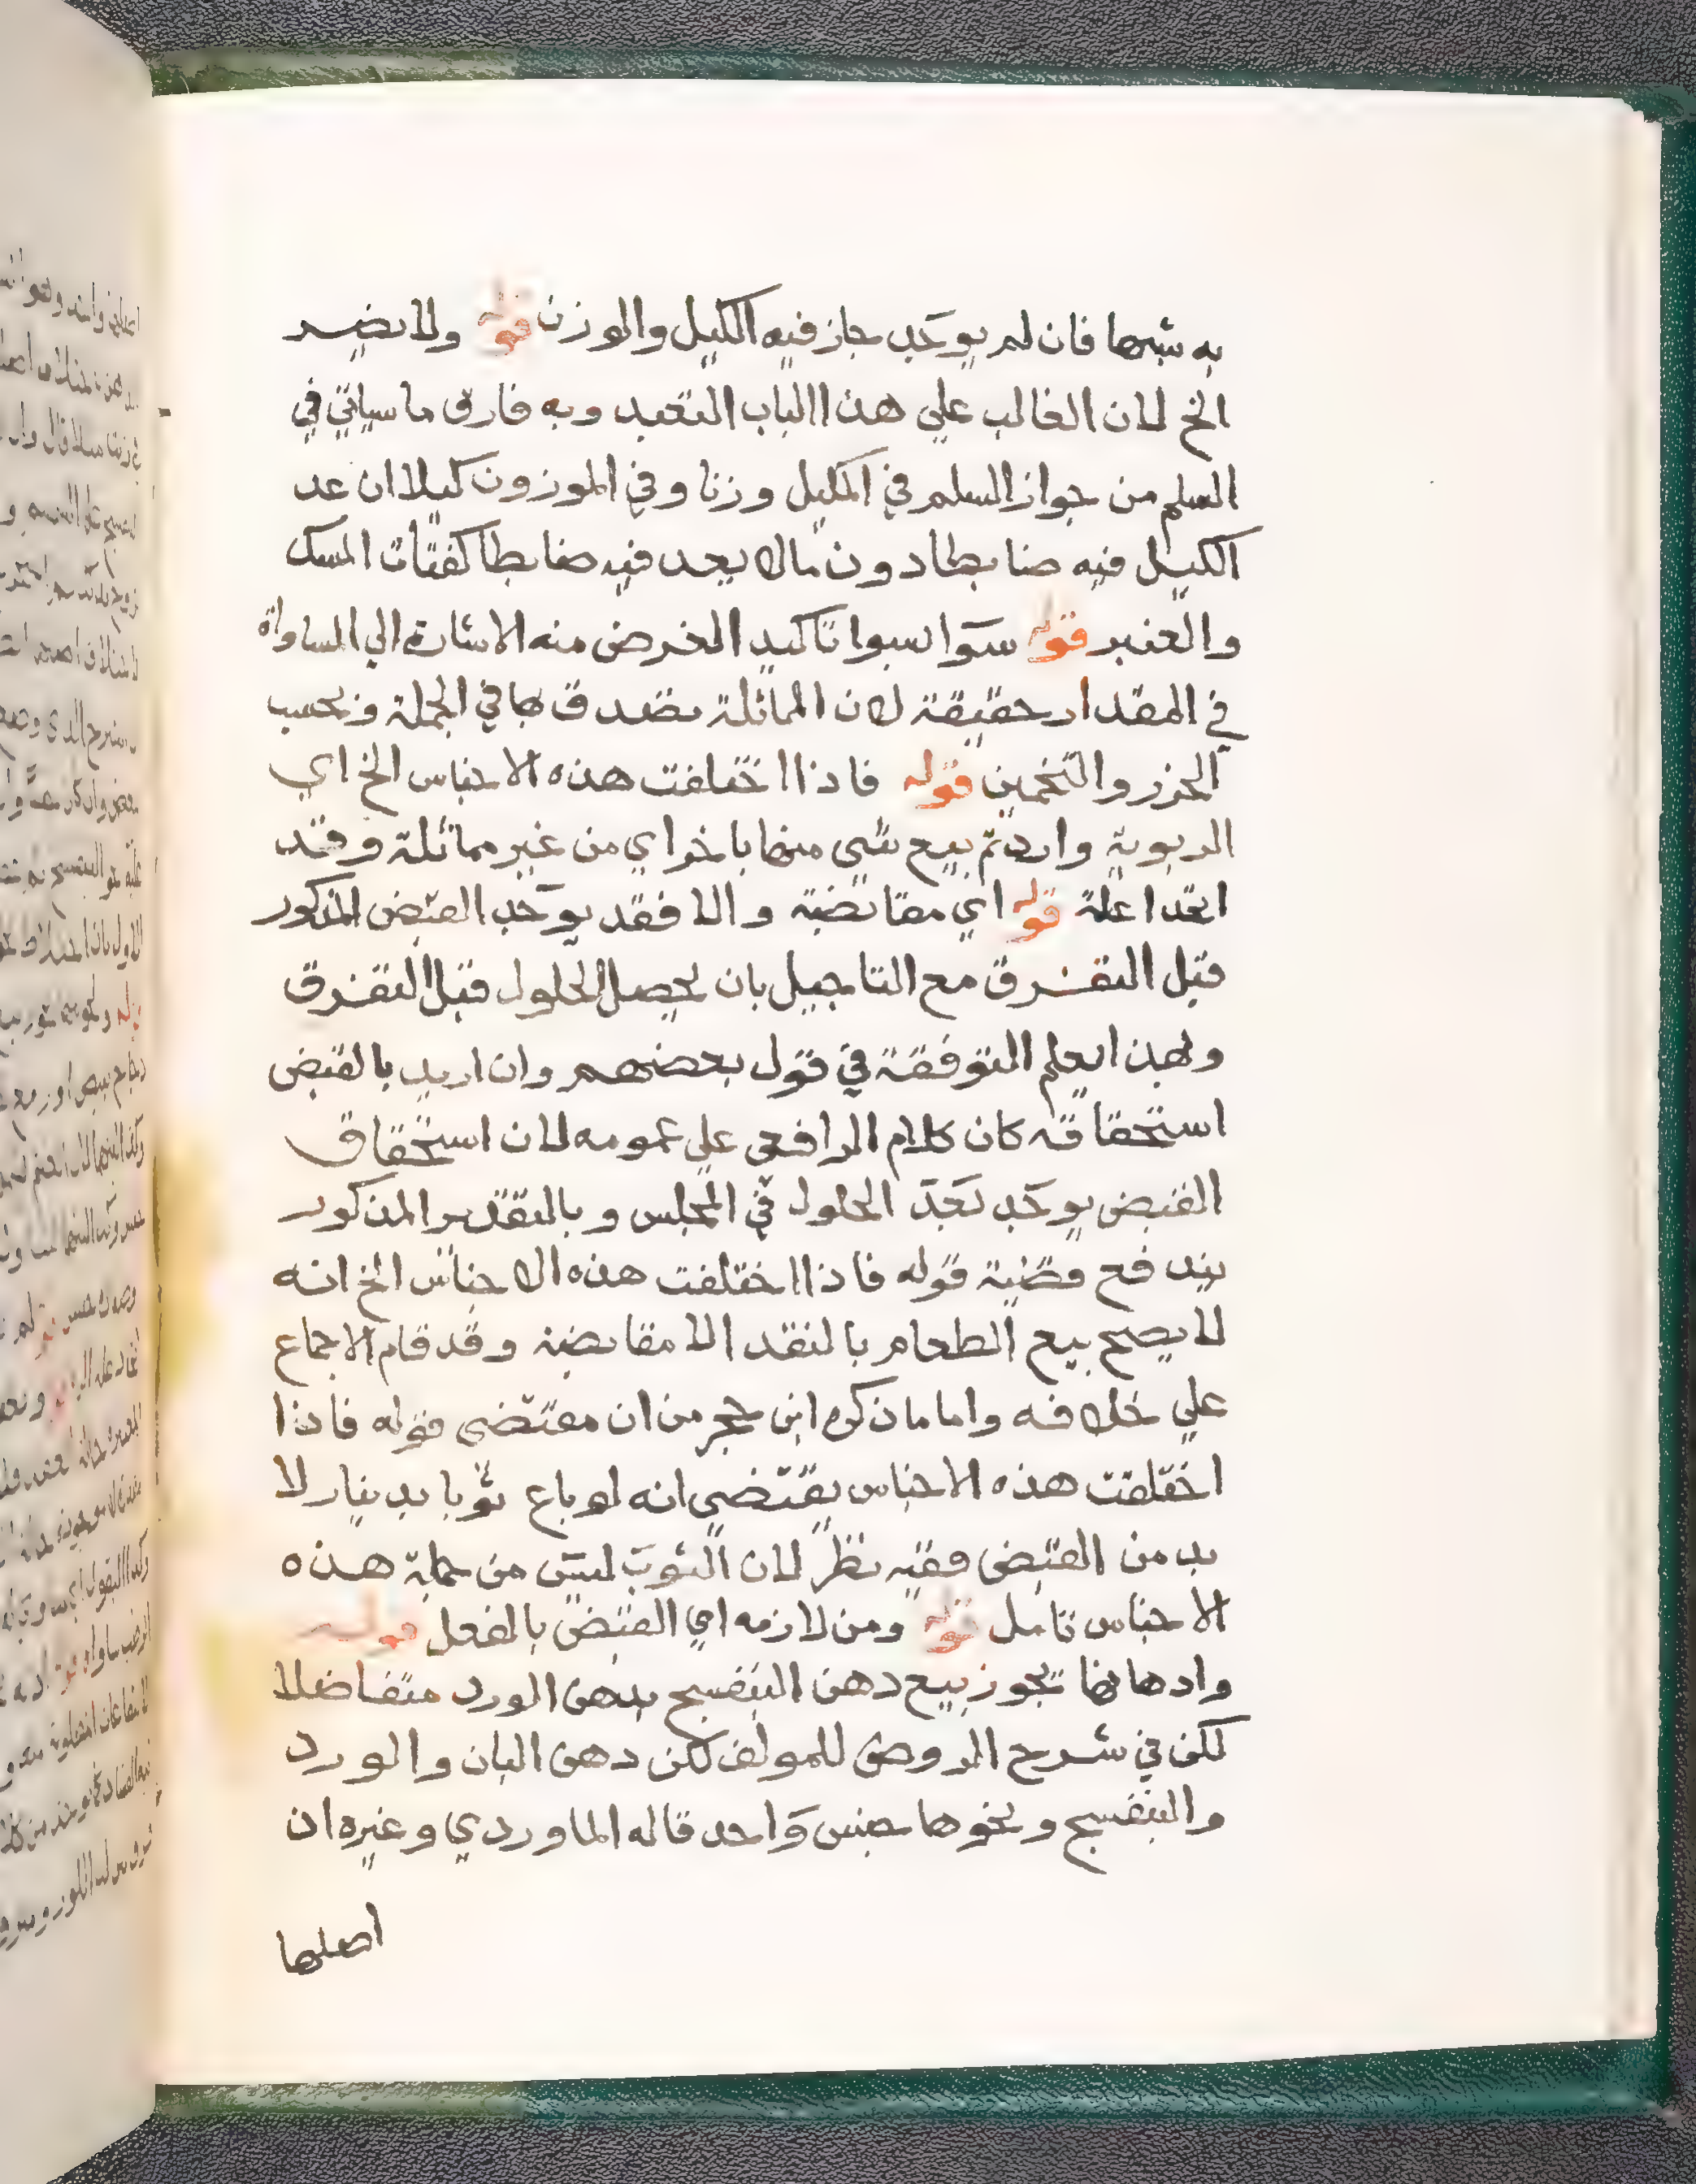 به شبها فان لم يوجد جاز فيه الكيل والوزن قوله ولا يضر
الخ لان الغالب علي هذا الباب التعبد وبه فارق ما سياتي في
السلم من جواز السلم في المكيل وزنا وفي الموزون كيلا ان عد
الكيل فيه ضابطا دون مالا يعد فيه ضابطا كفتات المسك
والعنبر قوله سوا بسوا تاكيد الغرض منه الاشارة الي المساواة
في المقدار حقيقة لان المماثلة تصدق بها في الجملة وبحسب
الحزر والتخمين قوله فاذا اختلفت هذه الاجناس الخ اي
الربوية واردتم بيع شي منها باخر اي من غير مماثلة وقد
اتحدا علة قوله اي مقابضة والا فقد يوجد القبض المذكور
قبل التفرق مع التاجيل بان يحصل الحلول قبل التفرق
ولهذا يعلم التوفقة في قول بعضهم وان اريد بالقبض
استحقاقه كان كلام الرافعي علي عمومه لان استحقاق
القبض يوجد بعد الحلول في المجلس وبالتقدير المذكور
يندفع قضية قوله فاذا اختلفت هذه الاجناس الخ انه
لا يصح بيع الطعام بالنقد الا مقابضة وقد قام الاجماع
علي خلافه واما ما ذكره ابن حجر من ان مقتضي قوله فاذا
اختلفت هذه الاجناس يقتضي انه لو باع ثوبا بدينار لا
بد من القبض ففيه نظر لان الثوب ليس من جملة هذه
الاجناس تامل قوله ومن لازمه اي القبض بالفعل قوله
وادهانها يجوز بيع دهن البنفسج بدهن الورد متفاضلا
لكن في شرح الروض للمولف لكن دهن البان والورد
والبنفسج ونحوها جنس واحد قاله الماوردي وغيره ان
اصلها